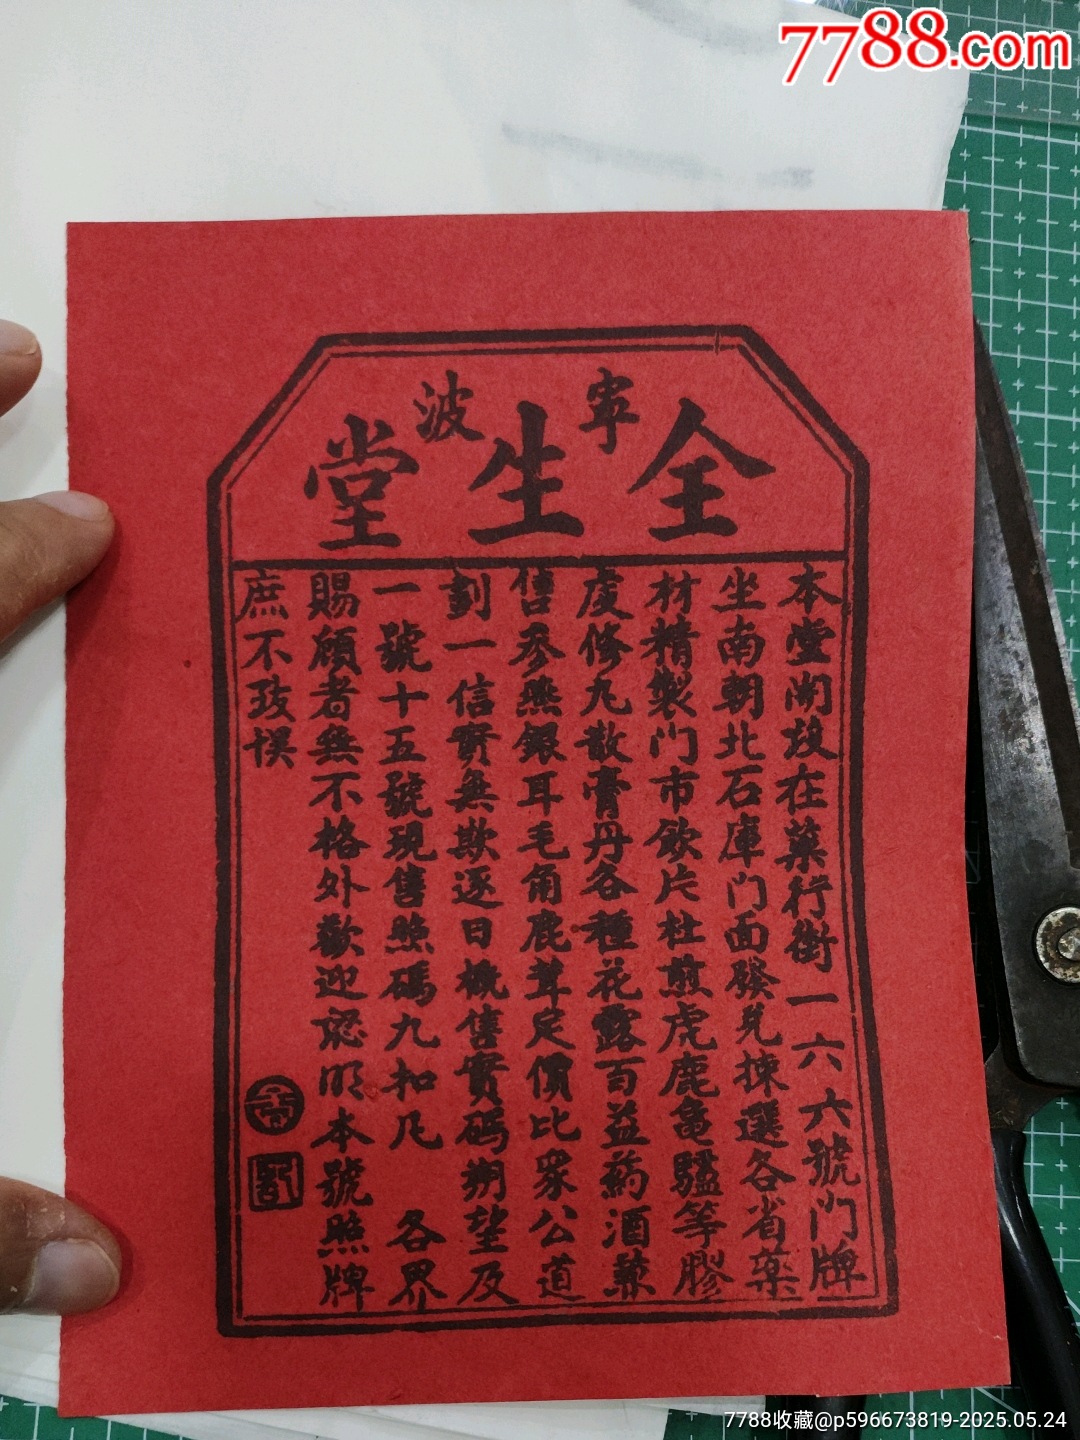 7788.com
寧波
全生堂
本堂開設在藥行街一六六號門牌
坐南朝北石庫門面發兌揀選各省藥
材精製門市飲片杜煎虎鹿龜驢等膠
虔修丸散膏丹各種花露百益葯酒兼
售參燕銀耳毛角鹿茸定價比眾公道
劃一信實無欺逐日概售實碼朔望及
一號十五號現售照碼九扣凡 各界
賜顧者無不格外歡迎認明本號照牌
庶不致悞
記
7788收藏@p596673819-2025.05.24